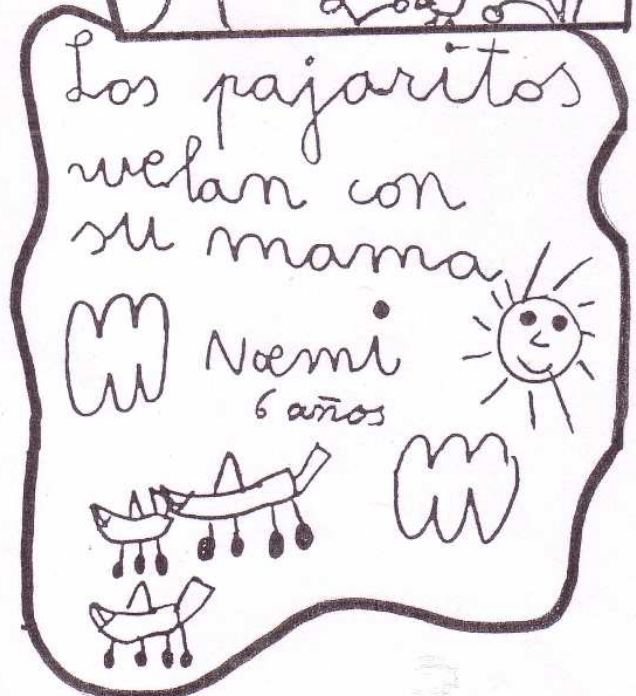 Los pajaritos
vuelan con
su mama
Noemi
6 años